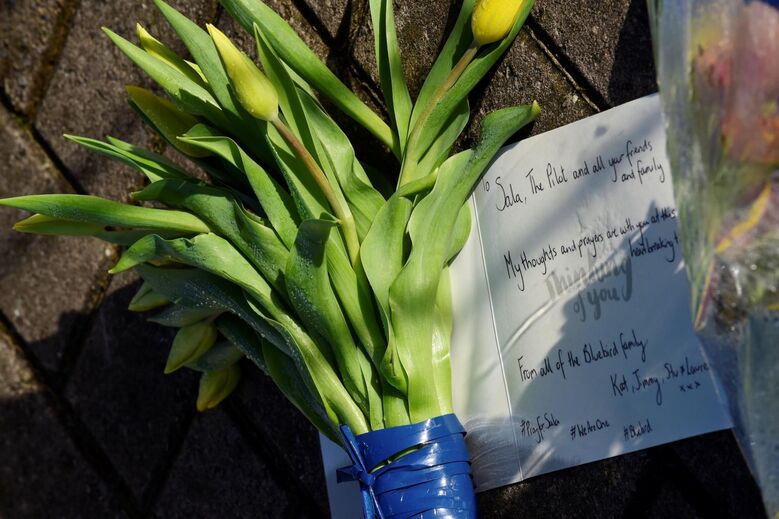 To
Sala, The Pilot and all your friends
and family
My thoughts and prayers are with you at this
heartbreaking t
Thinking
of you
From all of the Bluebird family
Kat, Jimmy, Stu & Laura
xxx
#PrayForSala #WeAreOne #Bluebird